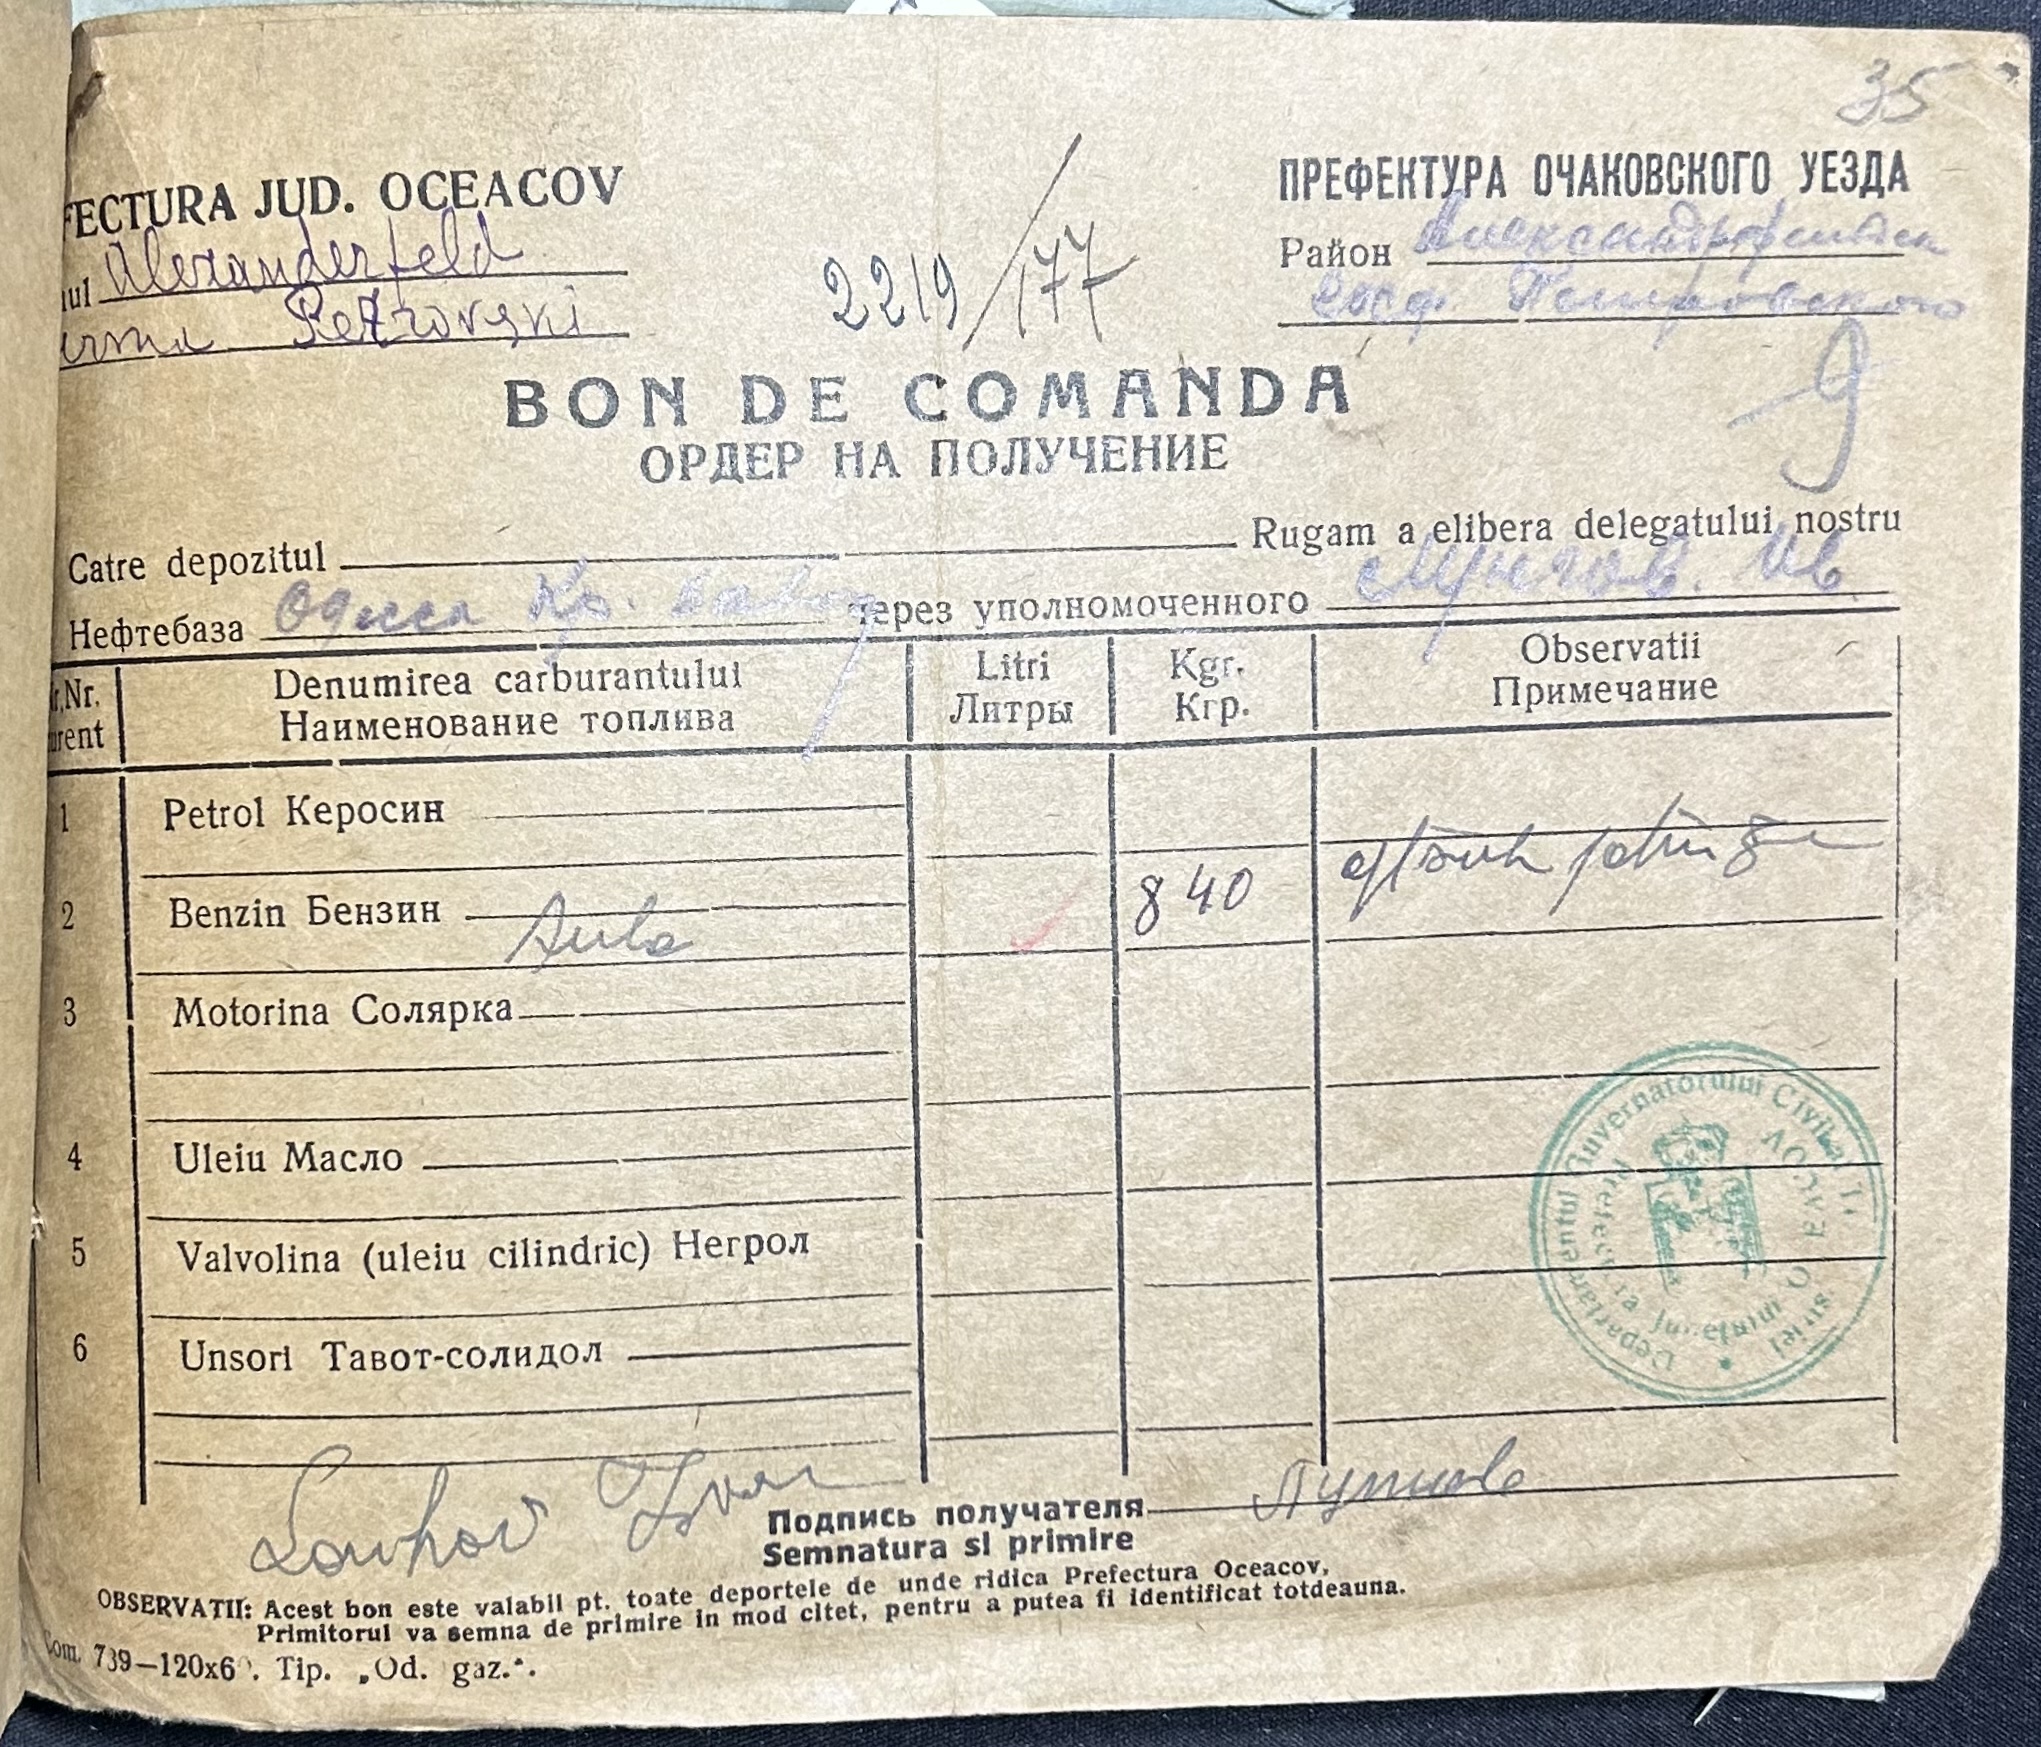 35
FECTURA JUD. OCEACOV
ПРЕФЕКТУРА ОЧАКОВСКОГО УЕЗДА
ul Alexanderfeld
Район
Petrovski
2219/177
9
BON DE COMANDA
ОРДЕР НА ПОЛУЧЕНИЕ
Catre depozitul Rugam a elibera delegatului nostru
Нефтебаза Одесса Кр. завод через уполномоченного Ив.
Nr. Denumirea carburantului Litri Kgr. Observatii
urent Наименование топлива Литры Кгр. Примечание
1 Petrol Керосин
2 Benzin Бензин 840
3 Motorina Солярка
4 Uleiu Масло
5 Valvolina (uleiu cilindric) Негрол
6 Unsori Тавот-солидол
Departamentul Guvernatorului Civil al Tr
Prefectura Judetului OCEACOV
Подпись получателя
Semnatura si primire
OBSERVATII: Acest bon este valabil pt. toate deportele de unde ridica Prefectura Oceacov,
Primitorul va semna de primire in mod citet, pentru a putea fi identificat totdeauna.
Com. 739—120x6 . Tip. „Od. gaz.".